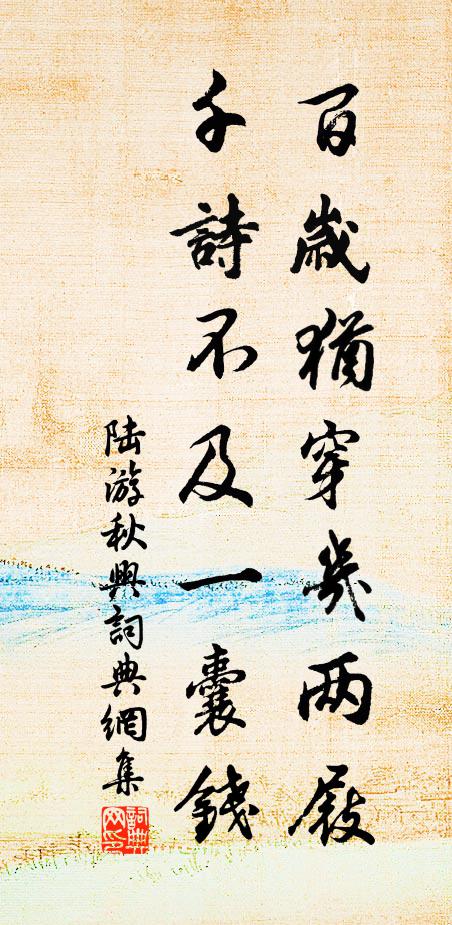 百歲猶穿幾两屐
千詩不及一囊錢
陆游秋興詞典網集
詞典网印